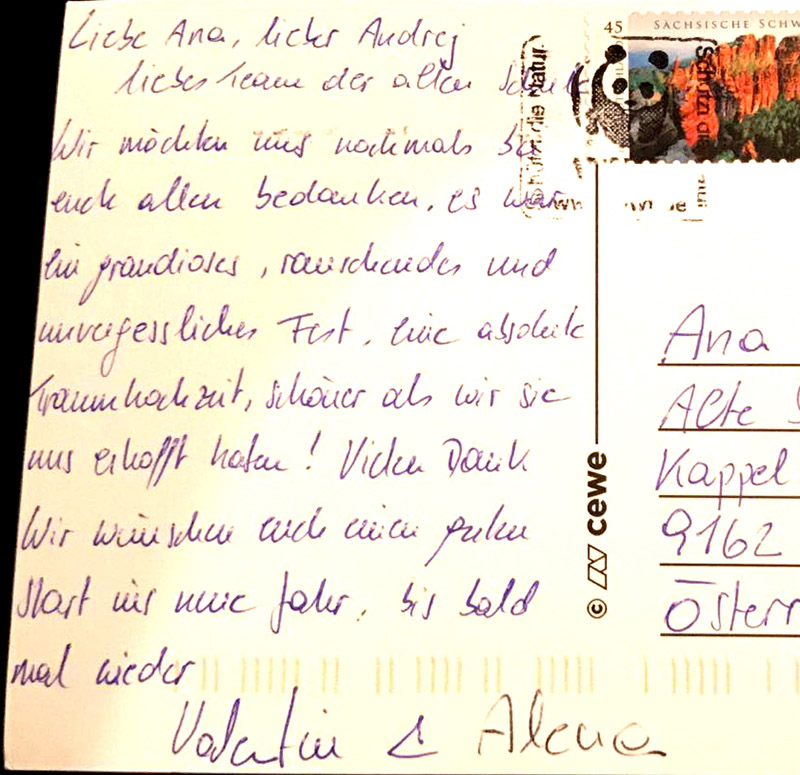 Liebe Ana, lieber Andrej
liebes Team der alten Schule
Wir möchten uns nochmals bei
euch allen bedanken, es war
ein grandioses, rauschendes und
unvergessliches Fest, eine absolute
Traumhochzeit, schöner als wir sie
uns erhofft haben! Vielen Dank
Wir wünschen euch einen guten
Start ins neue Jahr, bis bald
mal wieder
Valentin & Alena
45
SÄCHSISCHE SCHW
© cewe
Ana
Alte S
Kappel
9162
Österr